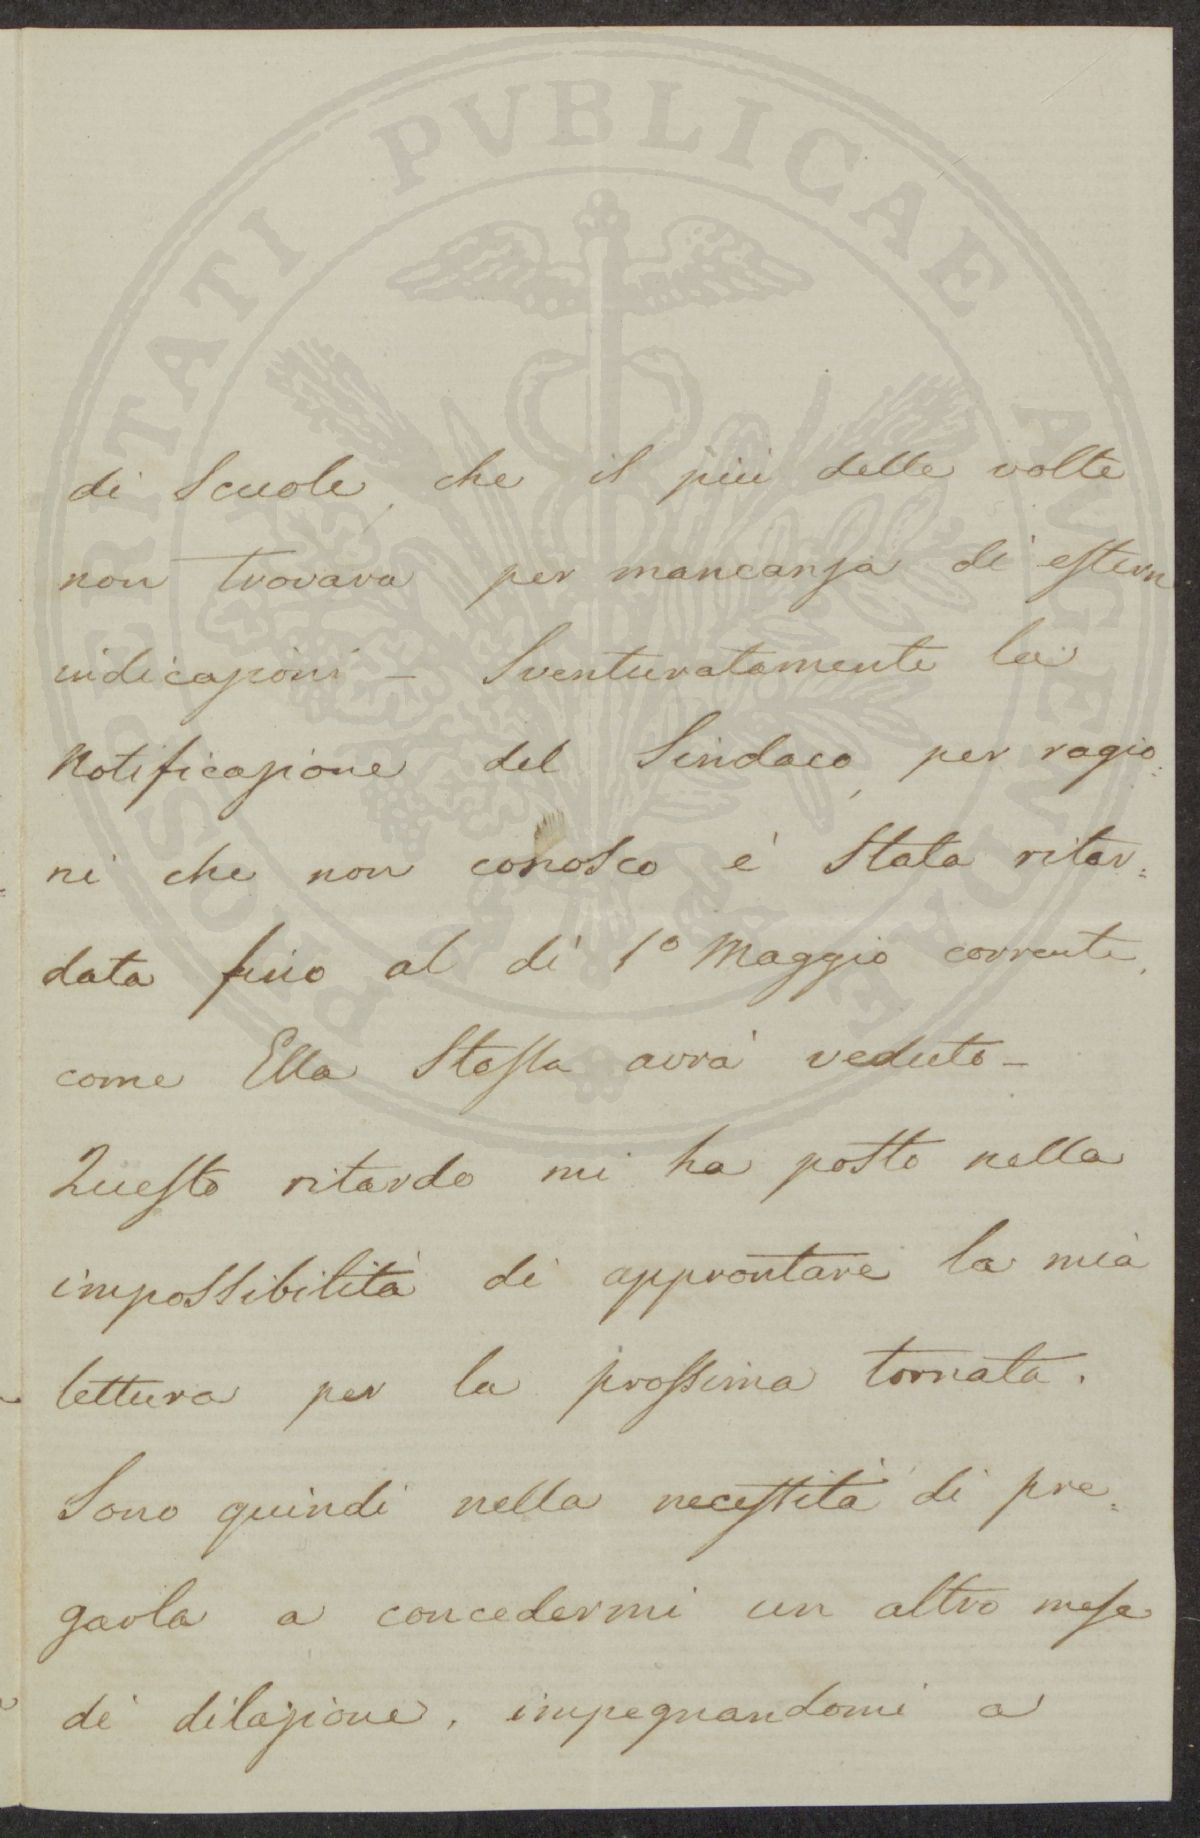 PROSPERITATI PVBLICAE AVGENDAE
di Scuole, che il più delle volte
non trovava per mancanza di estern
indicazioni – Sventuratamente la
Notificazione del Sindaco, per ragio=
ni che non conosco è stata ritar=
data fino al dì 1º Maggio corrente,
come Ella stessa avrà veduto –
Questo ritardo mi ha posto nella
impossibilità di approntare la mia
lettura per la prossima tornata.
Sono quindi nella necessità di pre=
garla a concedermi un altro mese
di dilazione, impegnandomi a